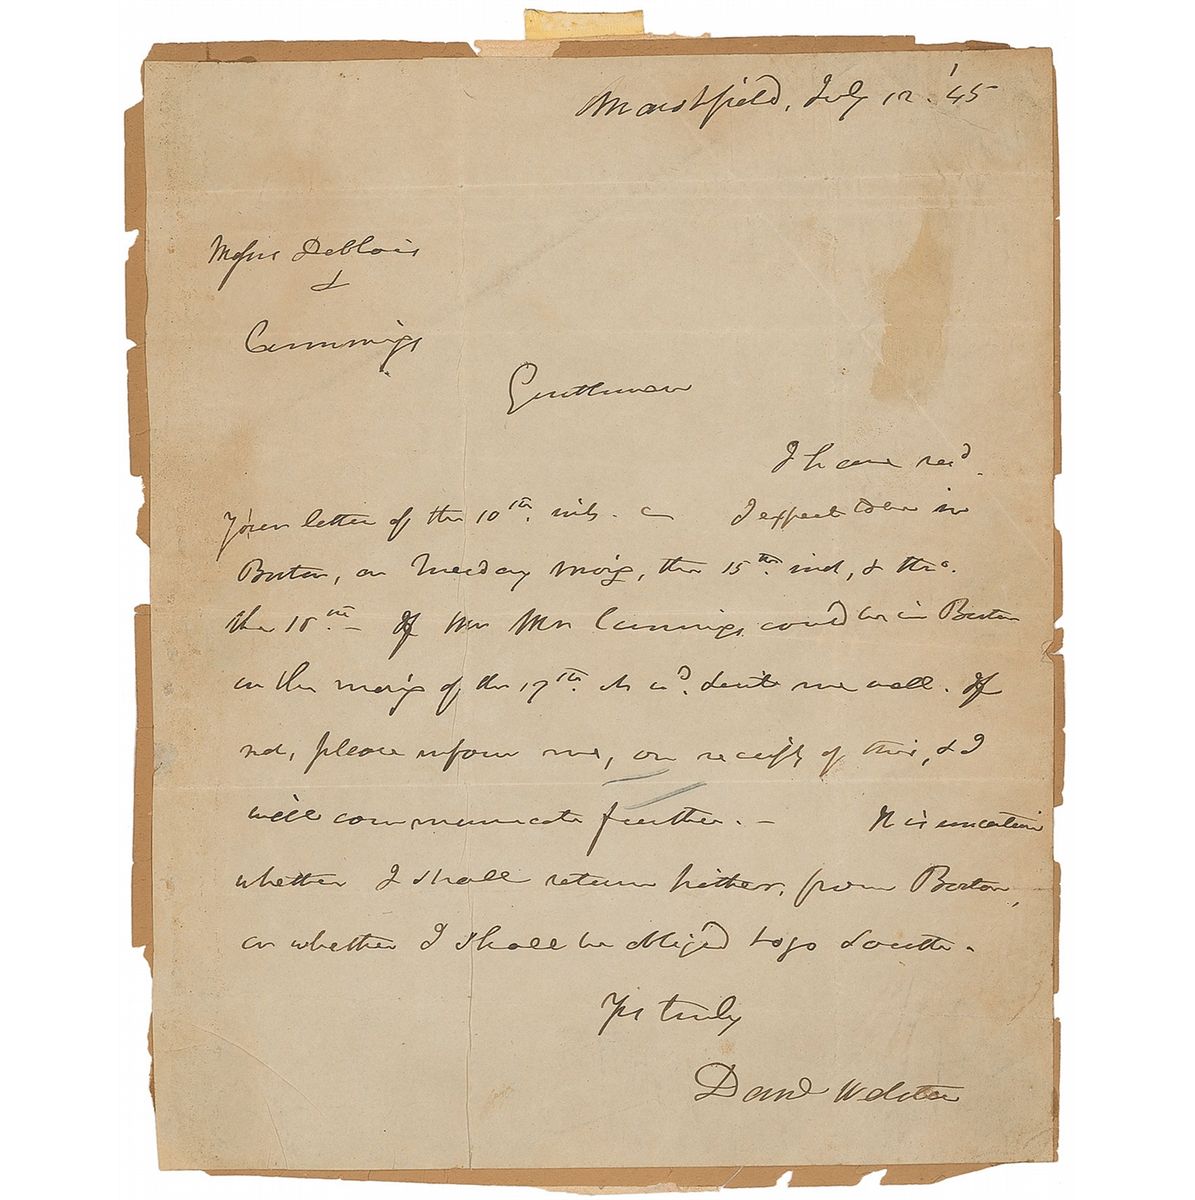 Marshfield, July 12. '45
Messrs Deblois
&
Cummings
Gentlemen
I have recd.
Your letter of the 10th. inst. — I expect to be in
Boston, on Tuesday morng, the 15th. inst, &
the 18th. — If Mr Cummings could be in Boston
in the morng of the 17th. it wd. suit me well. If
not, please inform me, on receipt of this, & I
will communicate further. — It is uncertain
whether I shall return hither, from Boston,
or whether I shall be obliged to go South.
Yrs truly
Danl Webster